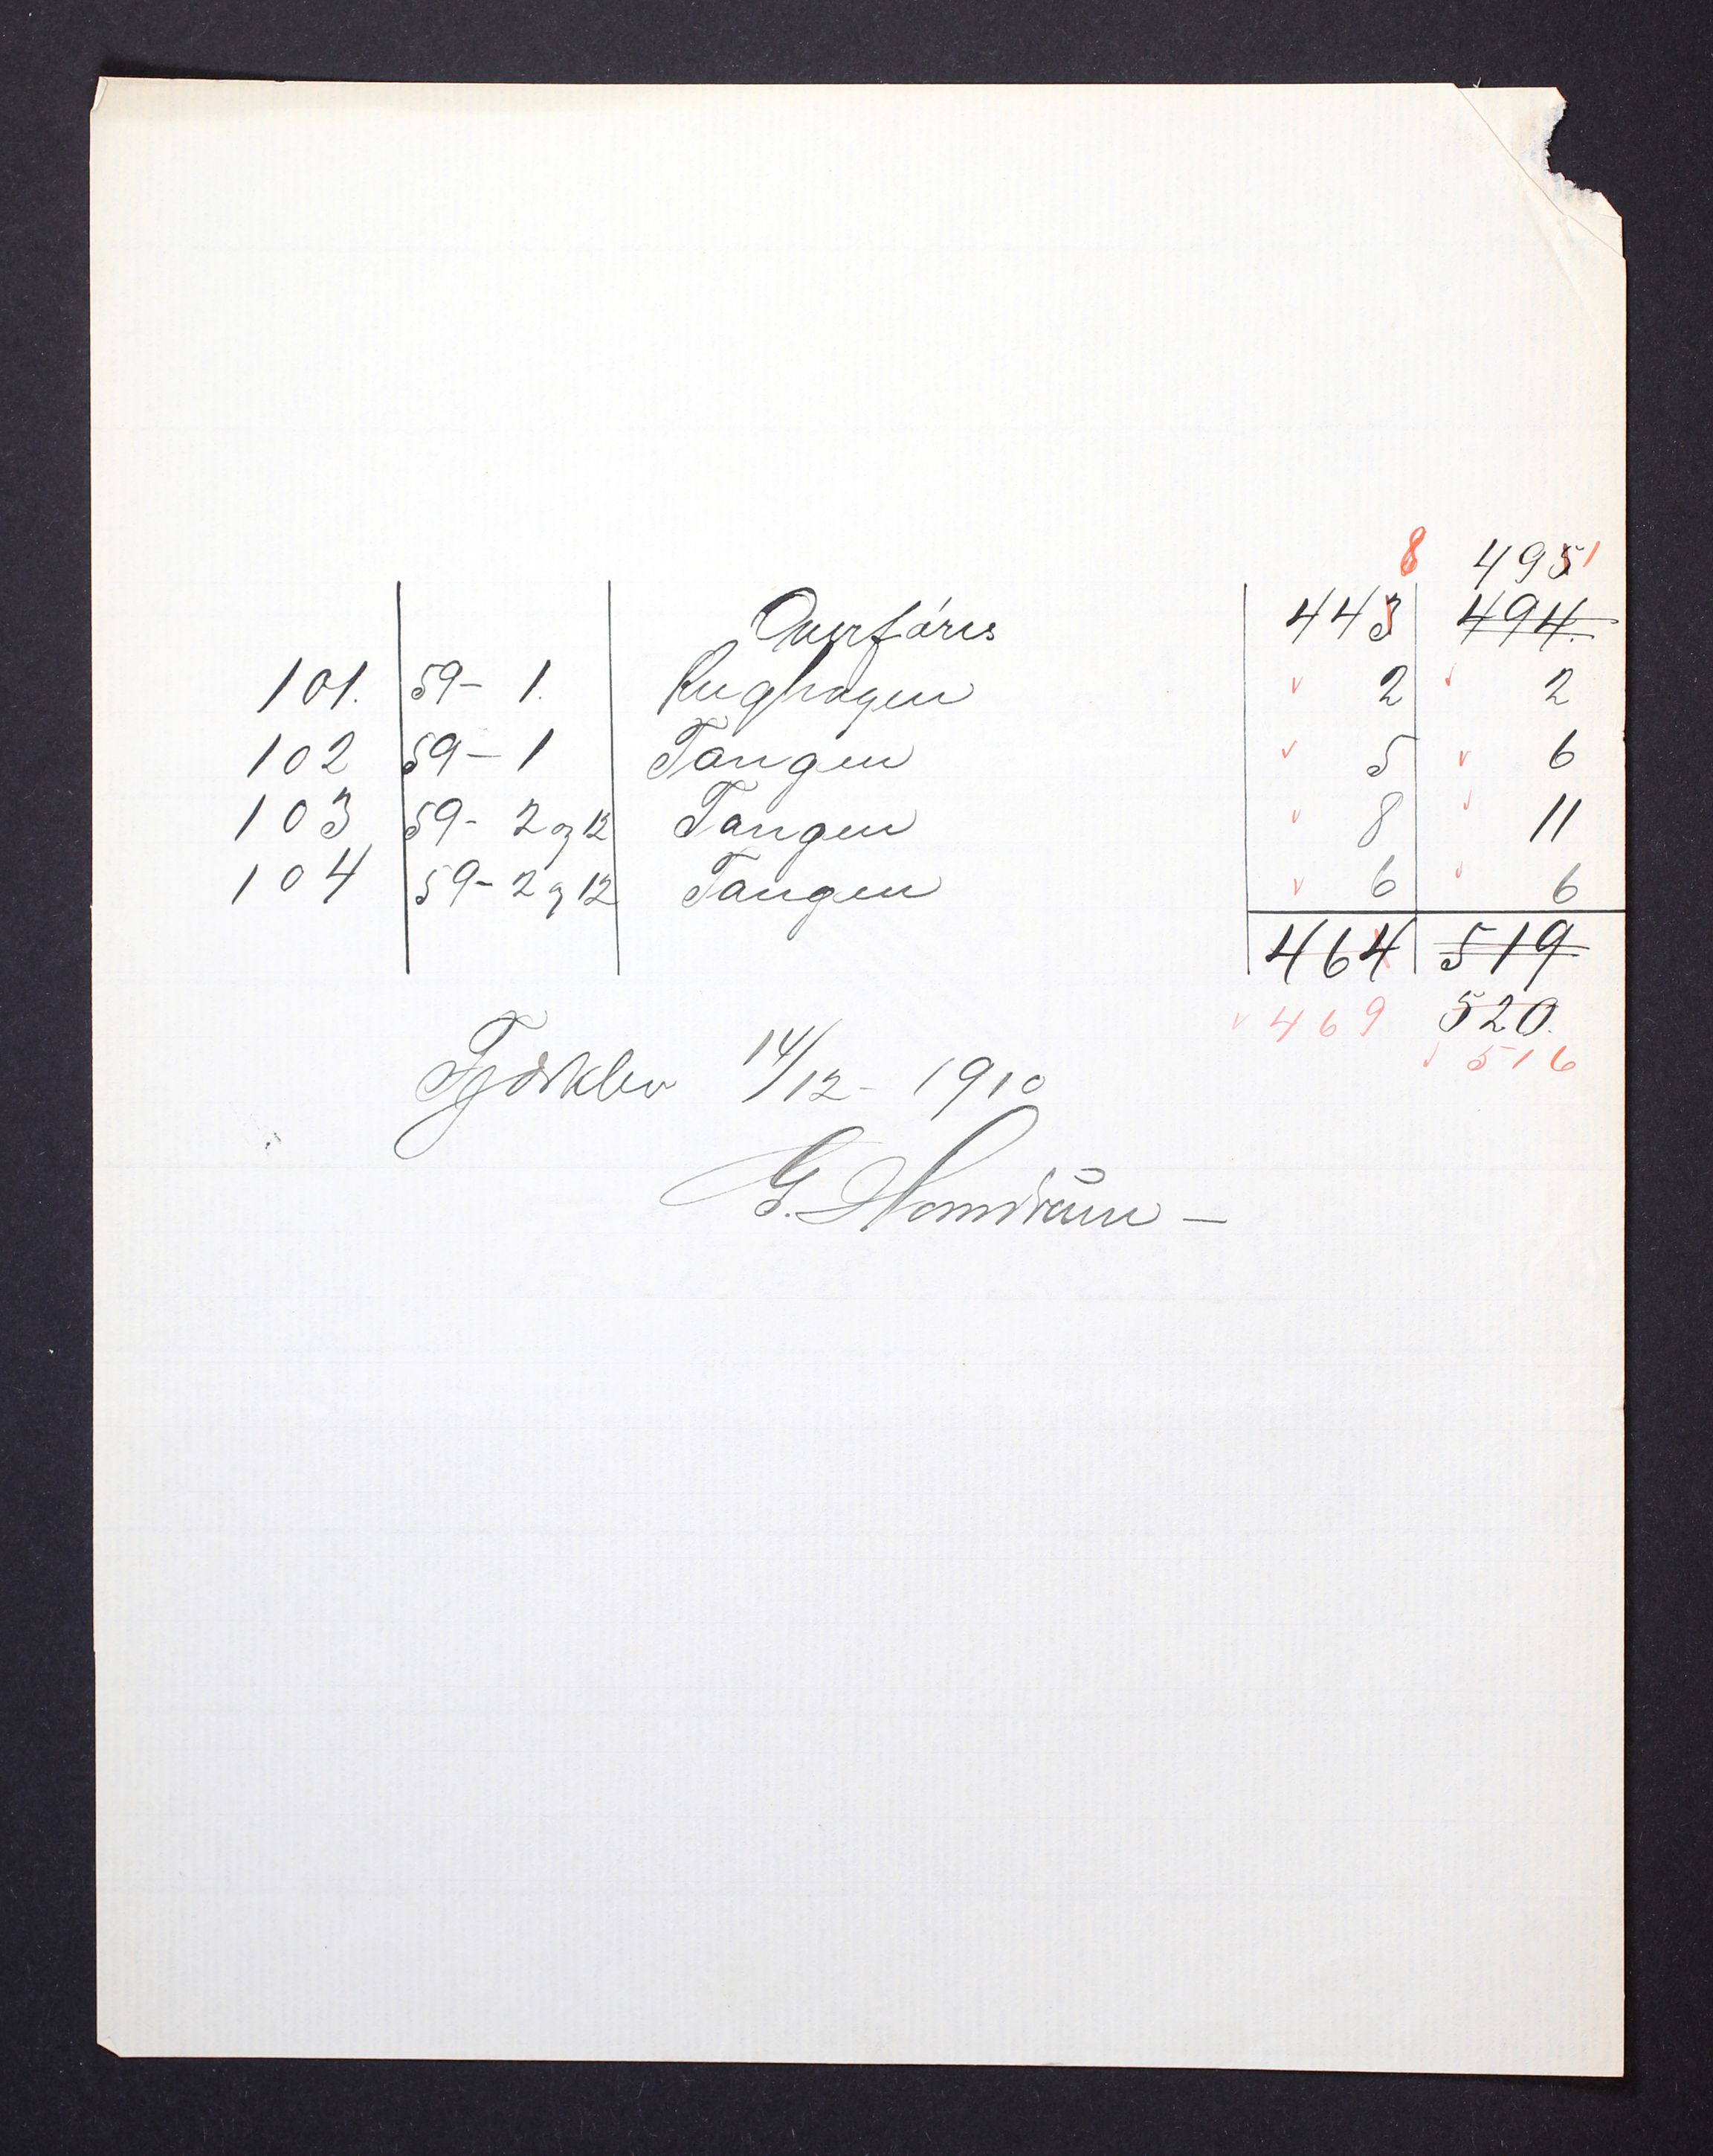 8 4951
Overføres 443 494.
101. 59- 1. Rughagen 2 2
102 59- 1 Tangen 5 6
103 59- 2 og 12 Tangen 8 11
104 59- 2 og 12 Tangen 6 6
464 519
469 520.
516
14/12- 1910
G. Homdrum